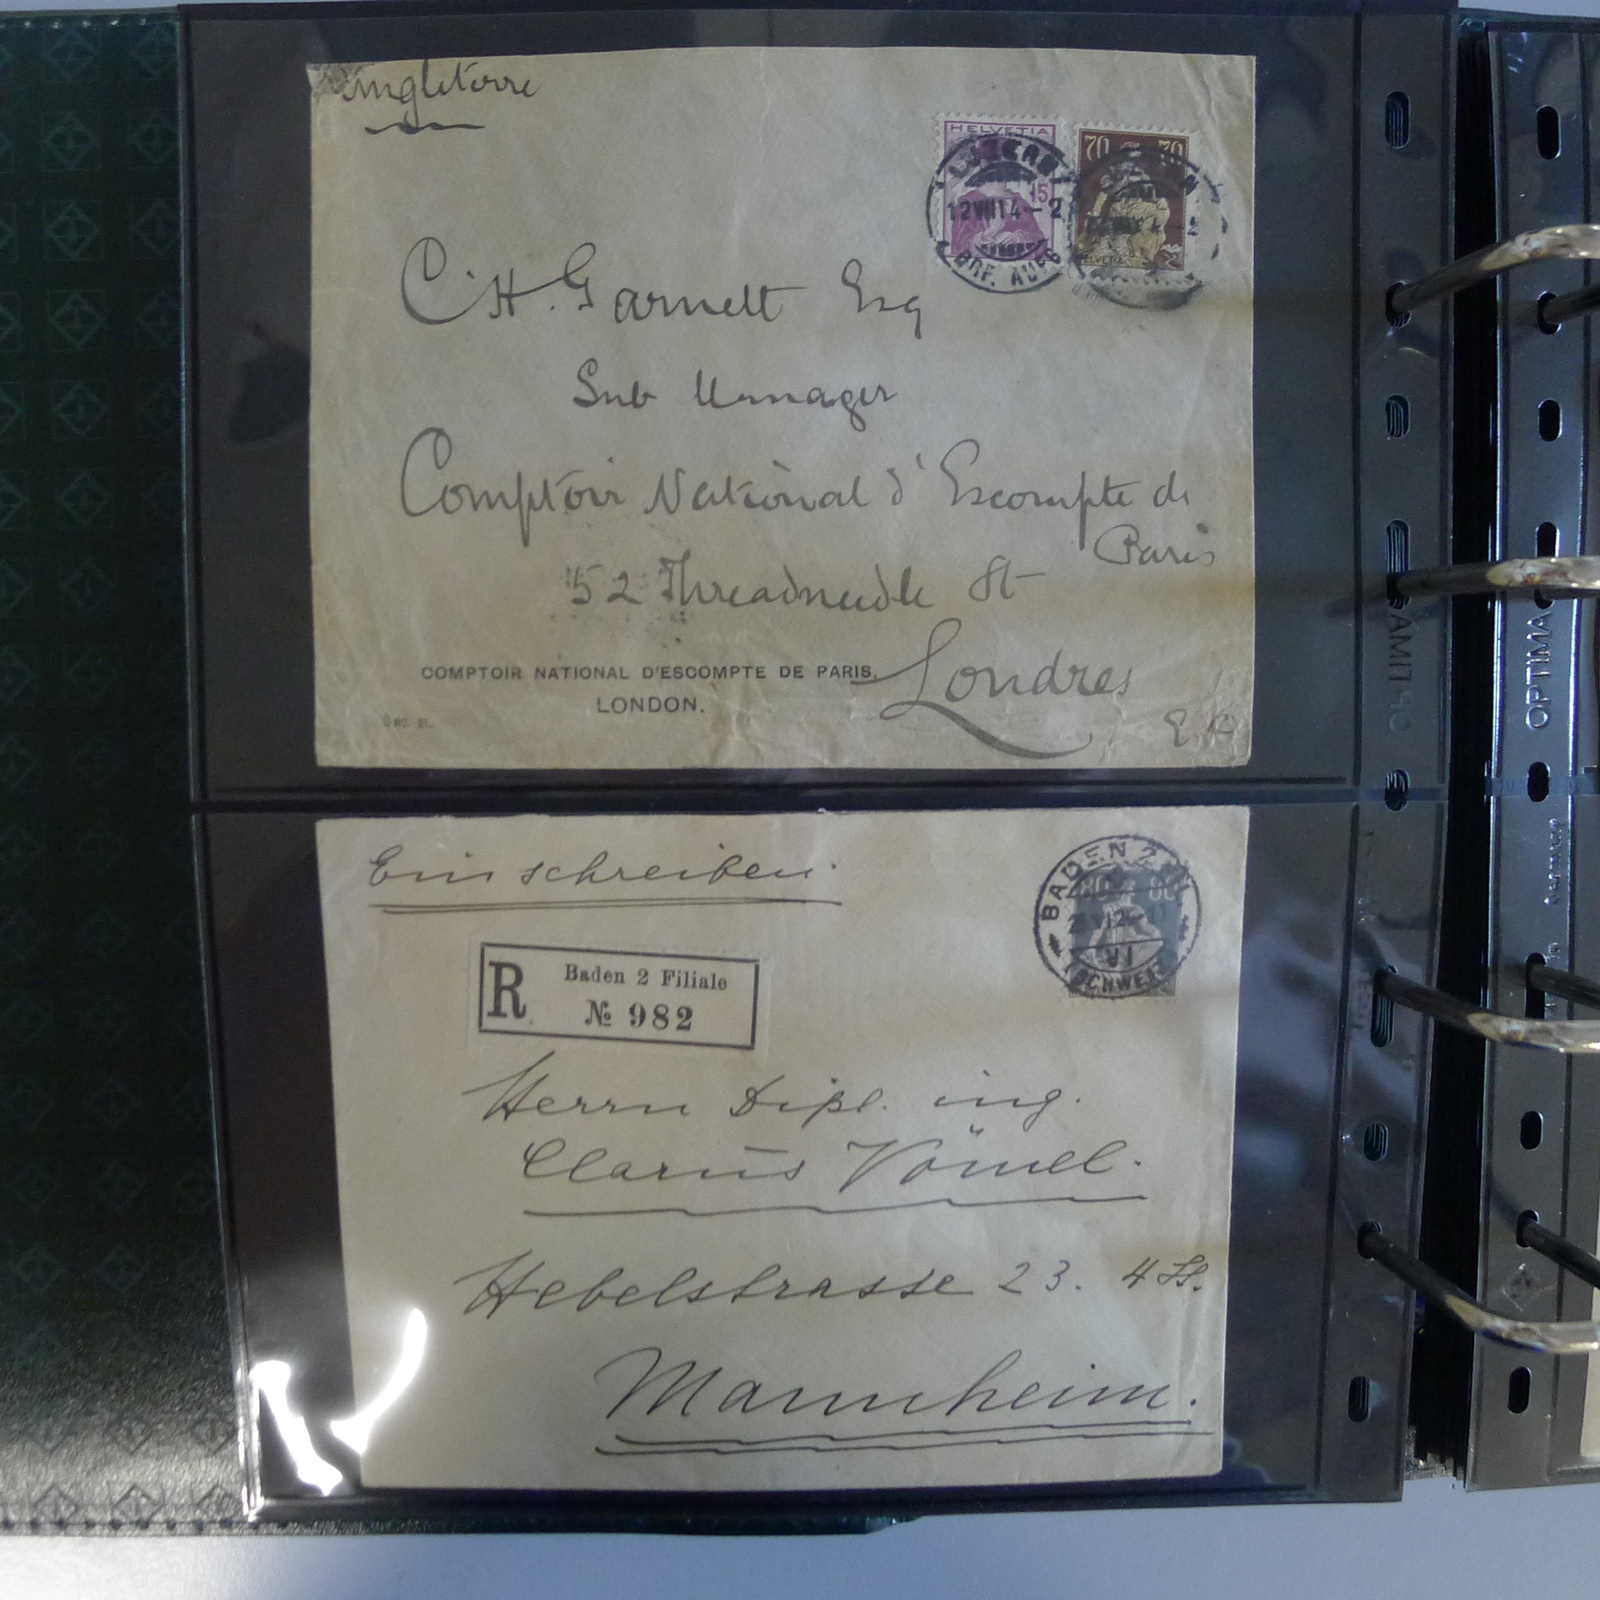 Angleterre
HELVETIA
15
70 70
HELVETIA
LUZERN
12 VII 14 - 2
BRF. AUFG
C. H. Garnett Esq
Sub Manager
Comptoir National d'Escompte de
Paris
52 Threadneedle St
Londres
COMPTOIR NATIONAL D'ESCOMPTE DE PARIS.
LONDON.
Einschreiben.
BADEN 2
80 80
VI
(SCHWEIZ)
R Baden 2 Filiale
№ 982
Herrn Dipl. ing.
Clarus Vömel.
Hebelstrasse 23. 4 St.
Mannheim.
OPTIMA
OPTIMA